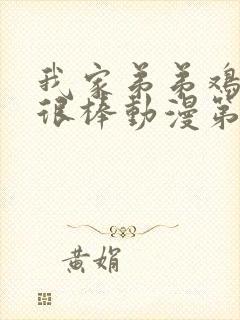 我家弟弟鸡
很棒動漫第
黄娟